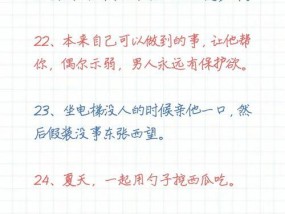 22、本来自己可以做到的事，让他帮
你，偶尔示弱，男人永远有保护欲。
23、坐电梯没人的时候亲他一口，然
后假装没事东张西望。
24、夏天，一起用勺子挖西瓜吃。